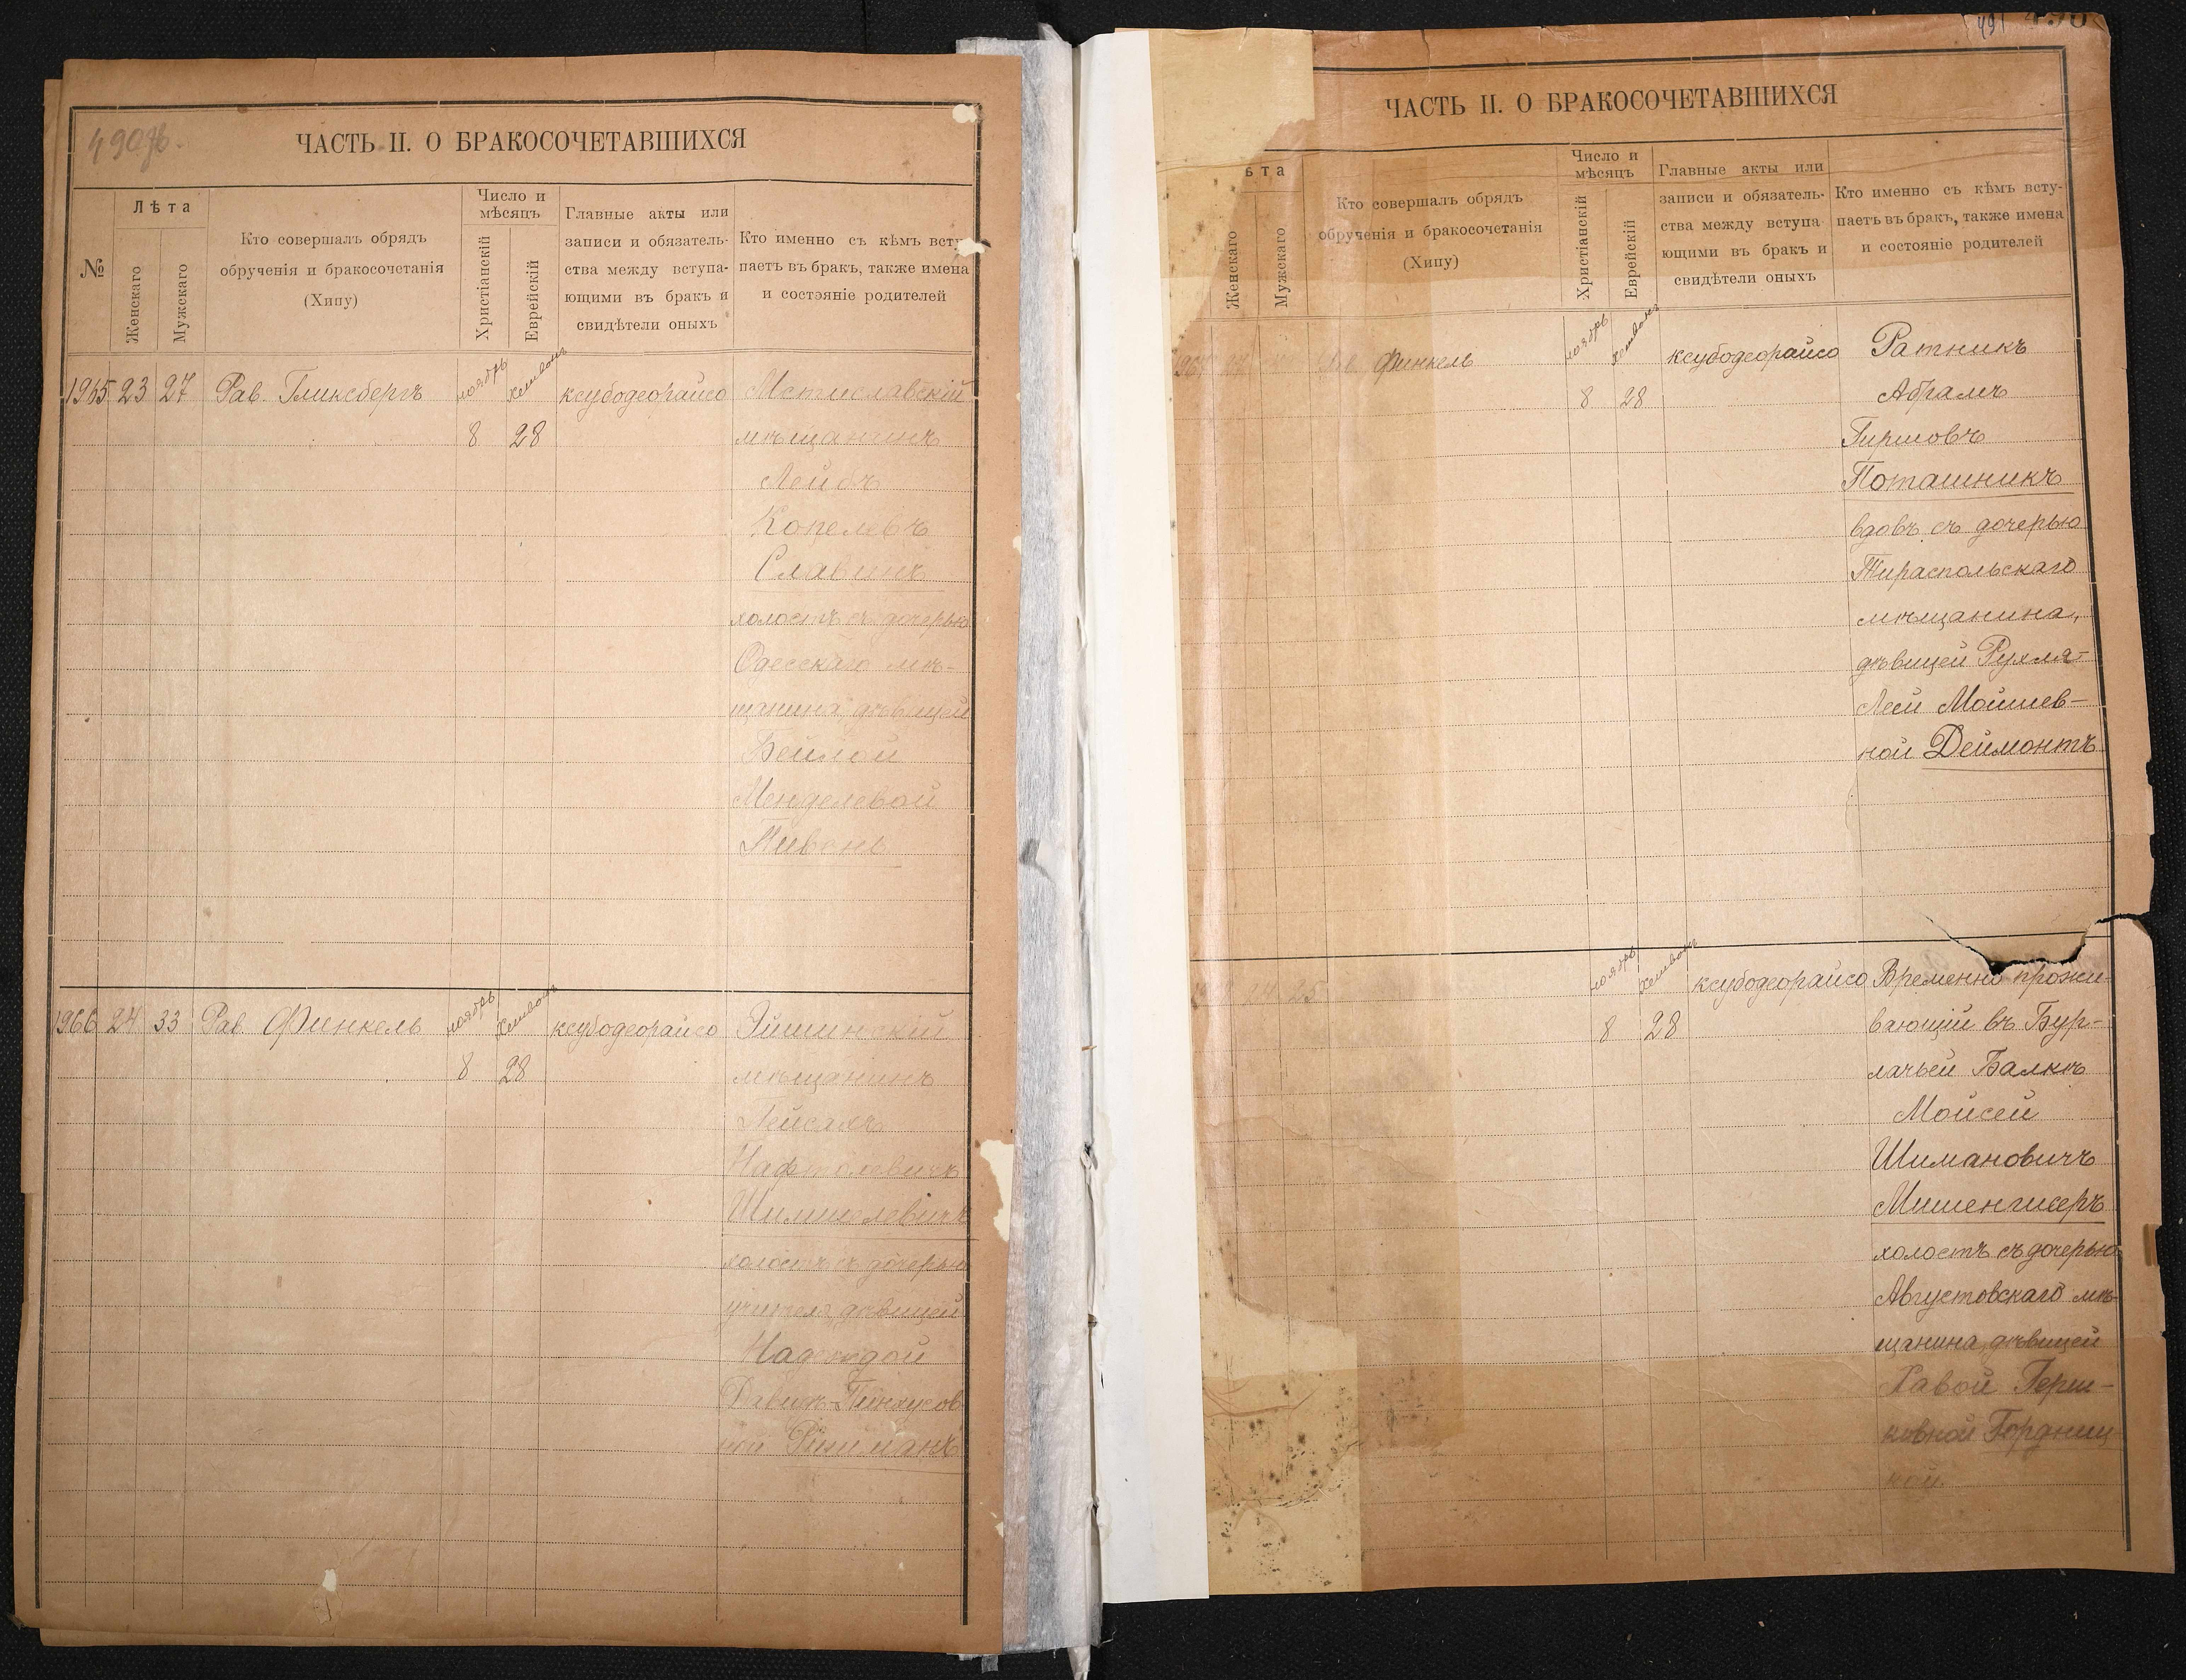 490об.
ЧАСТЬ II. О БРАКОСОЧЕТАВШИХСЯ
№
Лѣта
Женскаго
Мужскаго
Кто совершалъ обрядъ
обрученія и бракосочетанія
(Хипу)
Число и
мѣсяцъ
Христіанскій
Еврейскій
Главные акты или
записи и обязатель-
ства между вступа-
ющими въ бракъ и
свидѣтели оныхъ
Кто именно съ кѣмъ всту-
паетъ въ бракъ, также имена
и состояніе родителей
1965 23 27 Рав. Гликсбергъ ноябрь Хешвонъ ксубодеорайсо Мстиславскій
8 28 мѣщанинъ
Лейбъ
Копелевъ
Славинъ
холостъ съ дочерью
Одесскаго мѣ-
щанина, дѣвицей
Бейлой
Менделевой
Пивень
1966 24 33 Рав. Финкель ноябрь Хешвонъ ксубодеорайсо Эйшишскій
8 28 мѣщанинъ
Пейсахъ
Нафтолевичъ
Шимшелевичъ
холостъ съ дочерью
учителя, дѣвицей
Надеждой
Давидъ-Пинхусов-
ной
491
ЧАСТЬ II. О БРАКОСОЧЕТАВШИХСЯ
ѣта
Женскаго
Мужскаго
Кто совершалъ обрядъ
обрученія и бракосочетанія
(Хипу)
Число и
мѣсяцъ
Христіанскій
Еврейскій
Главные акты или
записи и обязатель-
ства между вступа
ющими въ бракъ и
свидѣтели оныхъ
Кто именно съ кѣмъ всту-
паетъ въ бракъ, также имена
и состояніе родителей
Финкель ноябрь Хешвонъ ксубодеорайсо Ратникъ
8 28 Абрамъ
Гиршовъ
Поташникъ
вдовъ съ дочерью
Тираспольскаго
мѣщанина,
дѣвицей Рухля-
Леей Мойшев-
ной Деймонтъ
24 25 ноябрь Хешвонъ ксубодеорайсо Временно прожи-
8 28 вающій въ Бур-
лачьей Балкѣ
Мойсей
Шимановичъ
Мишенгисеръ
холостъ съ дочерью
Августовскаго мѣ-
щанина, дѣвицей
Хавой Герш-
ковной Гордниц-
кой